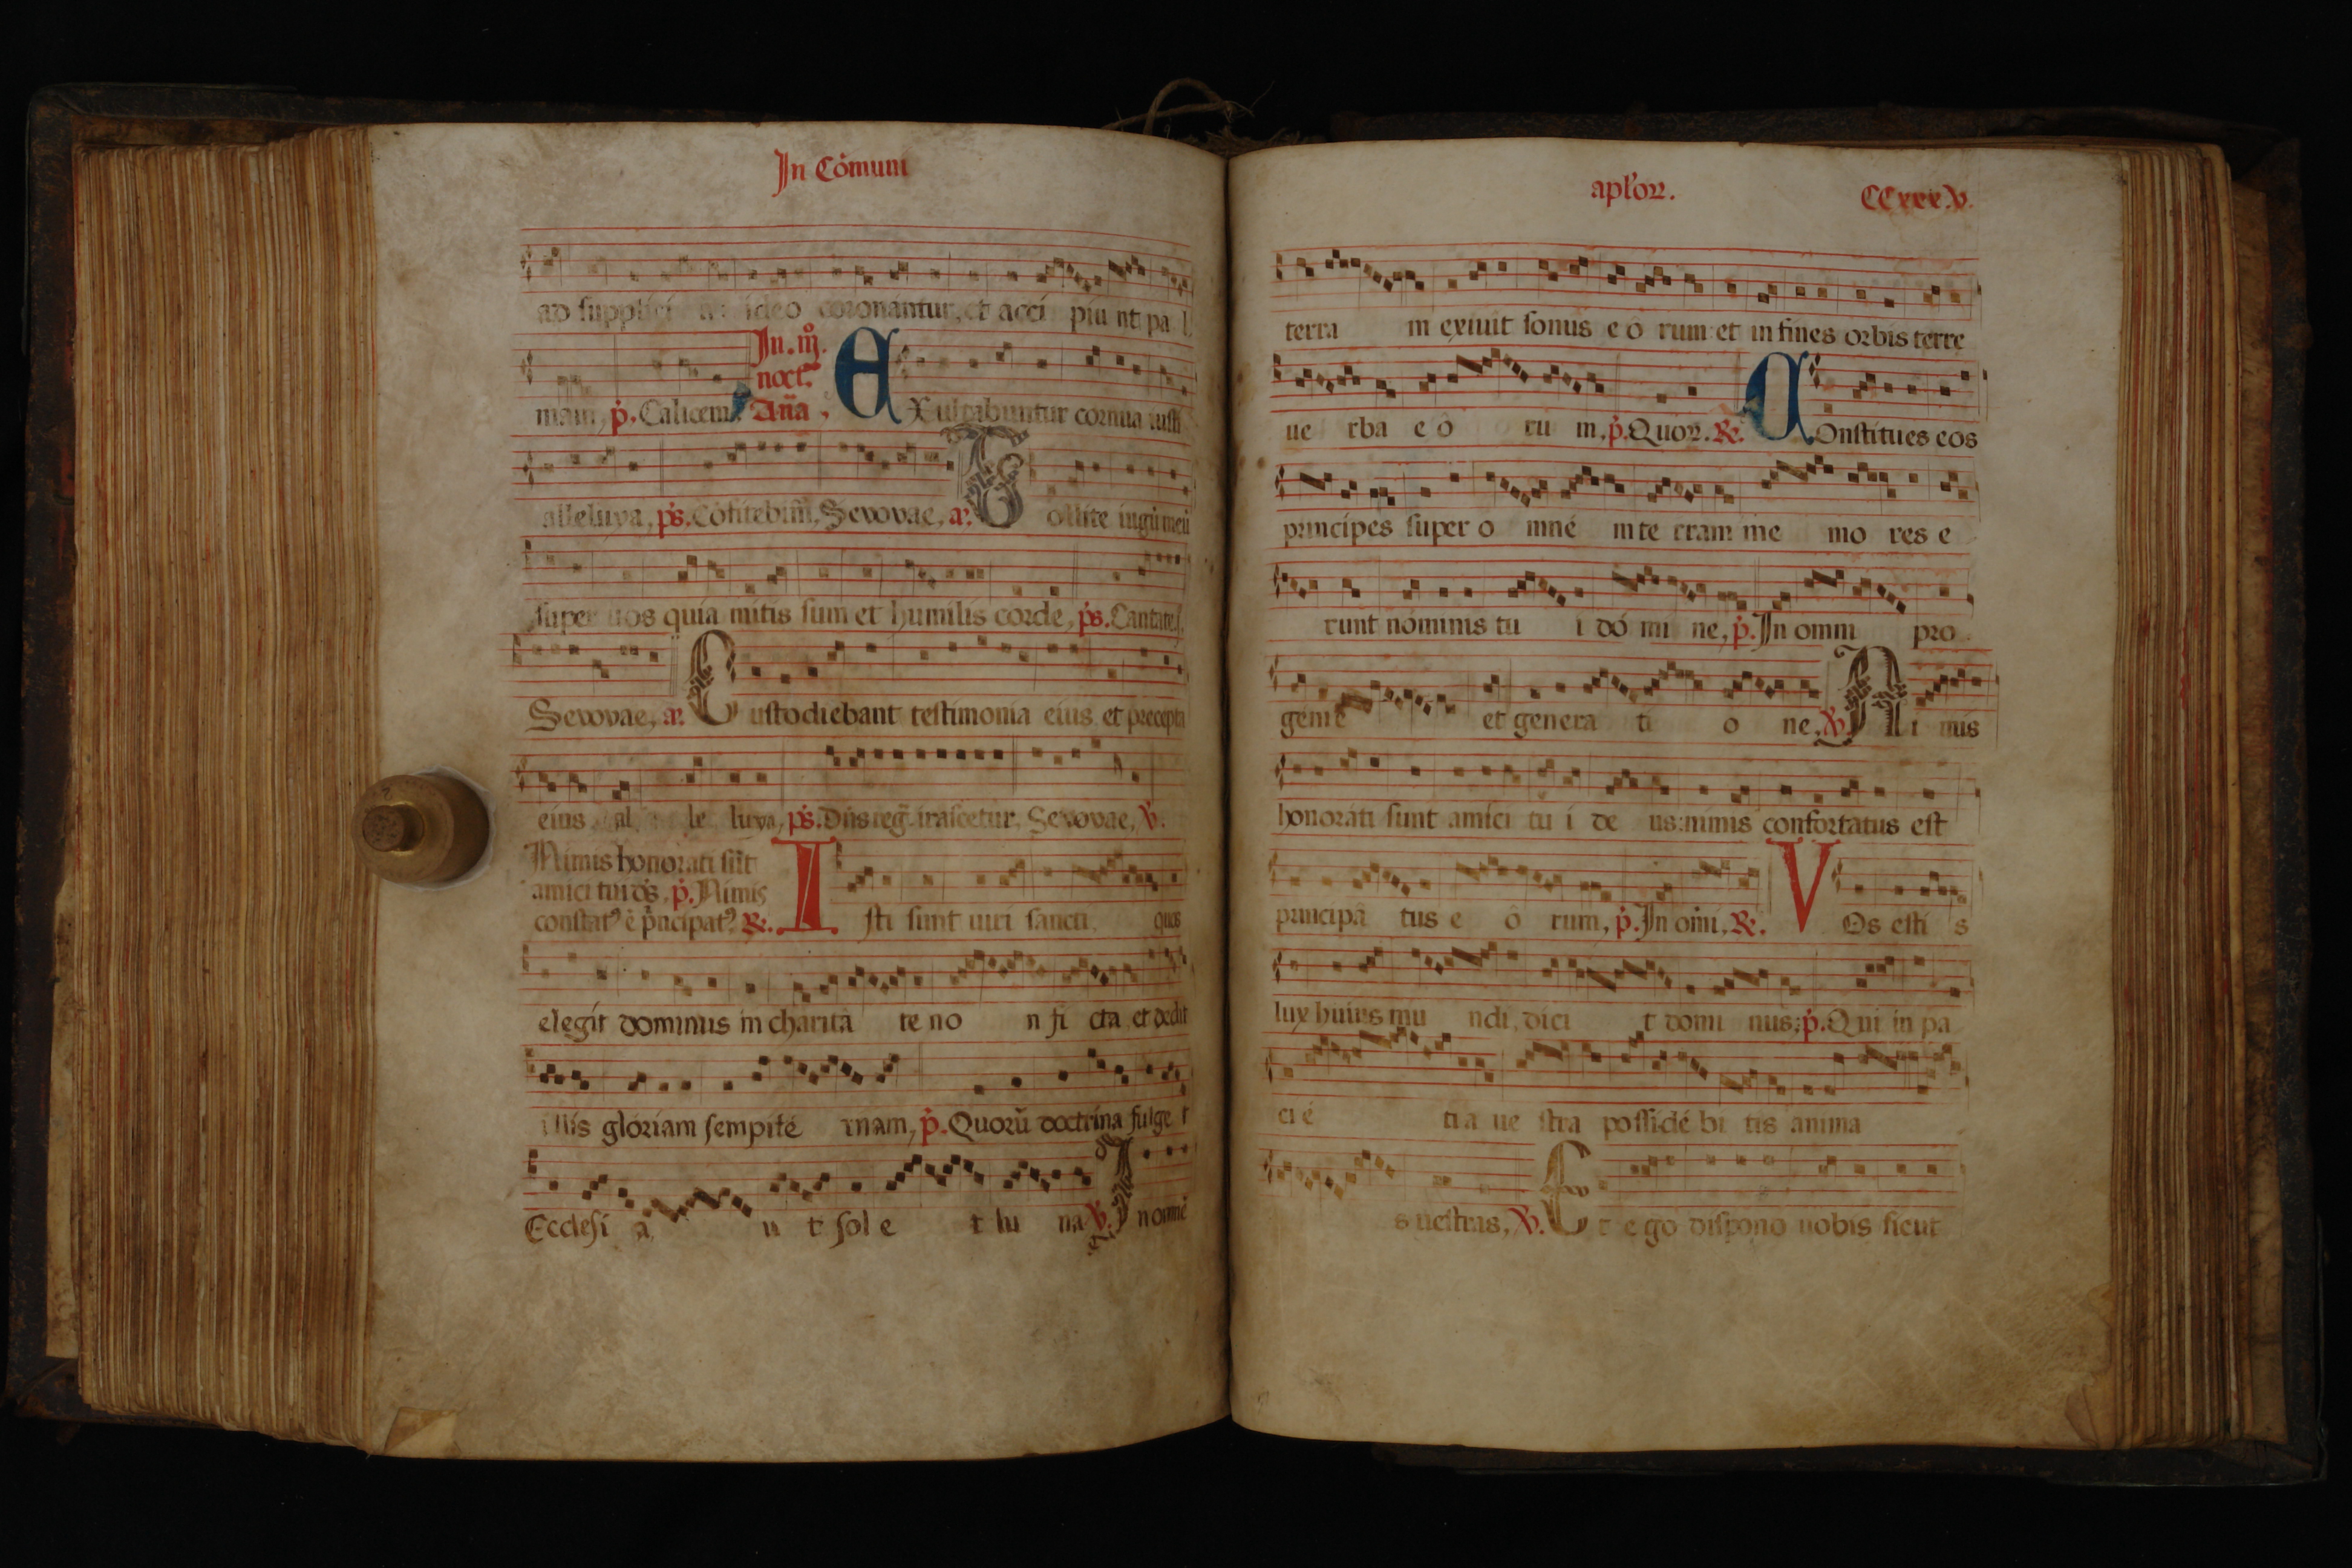 In Cómuni
ad supplici ideo coronantur, et acci piu nt pa l
mam, p̓. Calicem. In. iij̊. noct.̃ Añа. EXultabuntur cornua iusti
alleluya, ps̓. Cōfitebim̃, Sevovae, a᷒. Tollite iugū meū
super uos quia mitis sum et humilis corde, ps̓. Cantate.
Sevovae, a᷒. Custodiebant testimonia eius et precepta
eius al le luya, ps̓. Dñs reg̃. irascetur. Sevovae, v̓.
Nimis honorati sūt
amici tui ds̓, p̓. Nimis
constatꝰ ē p̓ncipatꝰ ℟. Isti sunt uiri sancti, quos
elegit dominus in charitá te no n fi cta et dedit
illis glóriam sempité rnam, p̓. Quorū doctrina fulge t
Ecclesi a, u t sol e t lu na ℣. In omnē
apl̓oꝝ. CCxxx.v.
terra m exiuit sonus e ó rum: et in fines orbis terre
ue rba e ó ru m, p̓. Quoꝝ. ℟. COnstitues eos
principes super o mné m te rram me mo res e
runt nóminis tu i dó mi ne, p̓. In omni pro
genie et genera ti o ne, ℣. Ni mis
honorati sunt amici tu i de us: nimis confortatus est
principá tus e ó rum, p̓. In oīni, ℟. VOs esti s
lux huius mu ndi, dici t domi nus; p̓. Qui in pa
ci é ti a ue stra possidé bi tis anima
s uestras, ℣. Et e go dispono uobis sicut